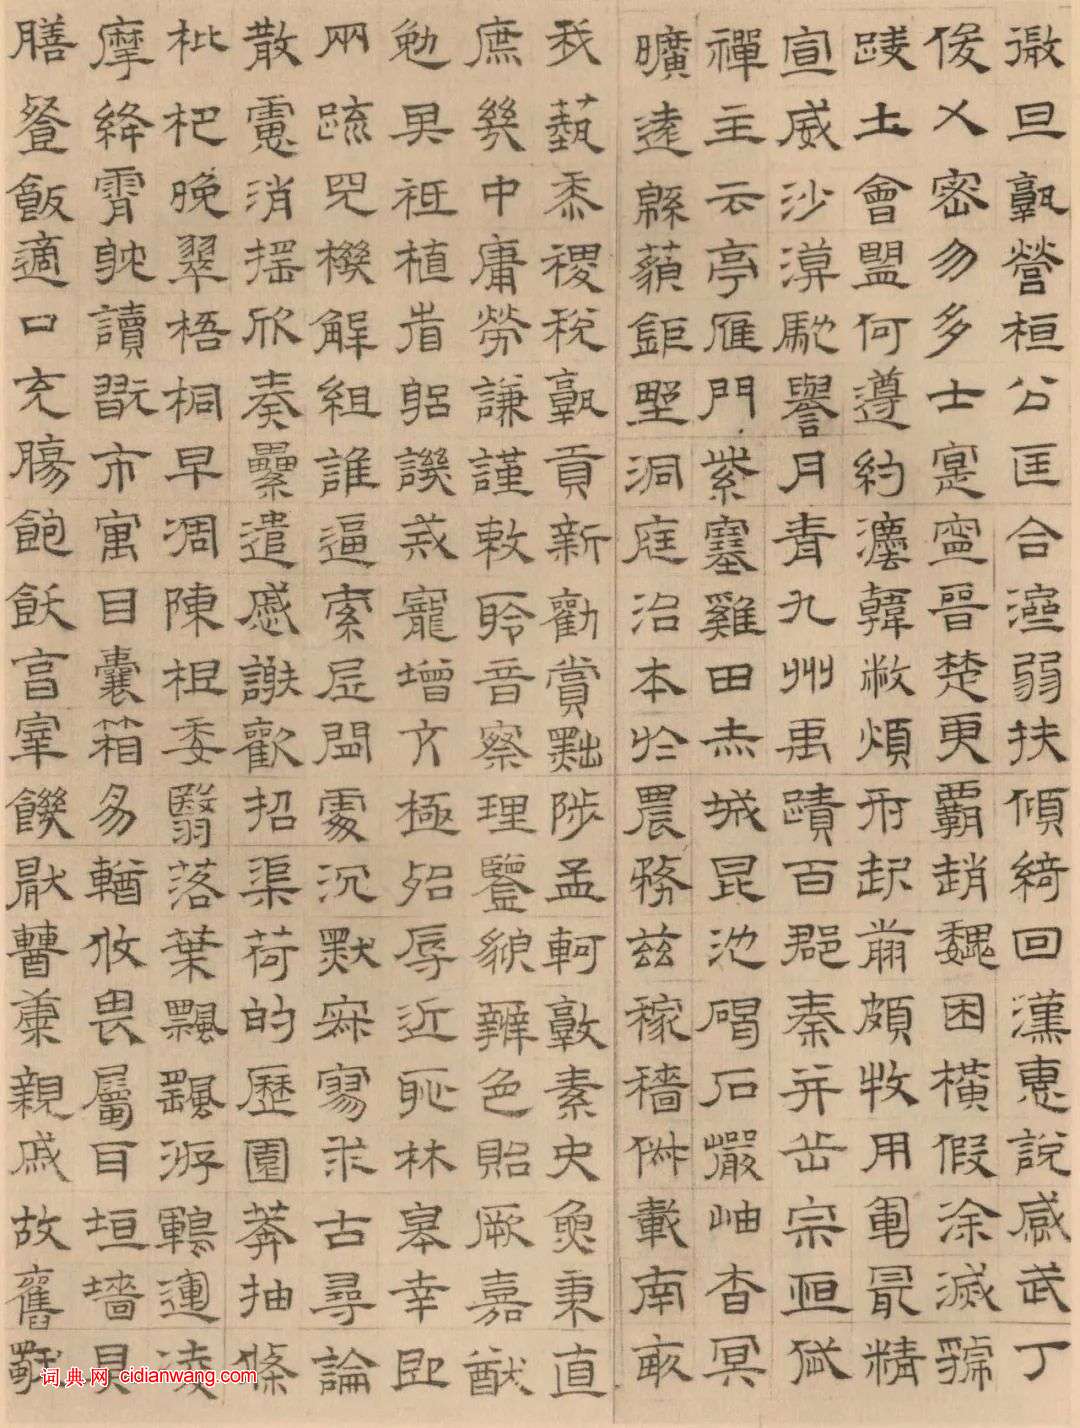 微旦孰營桓公匡合濕弱扶傾綺回漢惠說感武丁
俊乂密勿多士寔寧晉楚更霸趙魏困橫假涂滅虢
踐土會盟何遵約灋韓敝煩刑起翦頗牧用軍最精
宣威沙漠馳譽丹青九州禹蹟百郡秦并岳宗恒岱
禪主云亭雁門紫塞雞田赤城昆池碣石巖岫杳冥
曠遠緜藐鉅野洞庭治本於農務茲稼穡俶載南畝
我藝黍稷稅孰貢新勸賞黜陟孟軻敦素史魚秉直
庶幾中庸勞謙謹敕聆音察理鑒貌辨色貽厥嘉猷
勉其祗植省躬譏誡寵增亢極殆辱近恥林皋幸即
兩疏見機解組誰逼索居閒處沉默寂寥求古尋論
散慮消搖欣奏纍遣慼謝歡招渠荷的歷園莽抽條
枇杷晚翠梧桐早凋陳根委翳落葉飄颻游鵾運凌
摩絳霄耽讀翫市寓目囊箱易輶攸畏屬耳垣墻具
膳餐飯適口充腸飽飫亯宰饑厭糟糠親戚故舊
词典网 cidianwang.com